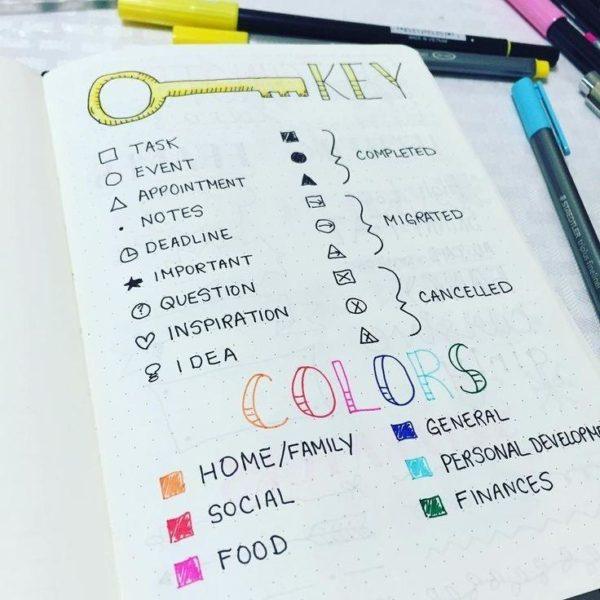 KEY
TASK
EVENT
APPOINTMENT
NOTES
DEADLINE
IMPORTANT
QUESTION
INSPIRATION
IDEA
COMPLETED
MIGRATED
CANCELLED
COLORS
HOME/FAMILY
SOCIAL
FOOD
GENERAL
PERSONAL DEVELOPME
FINANCES
STAEDTLER